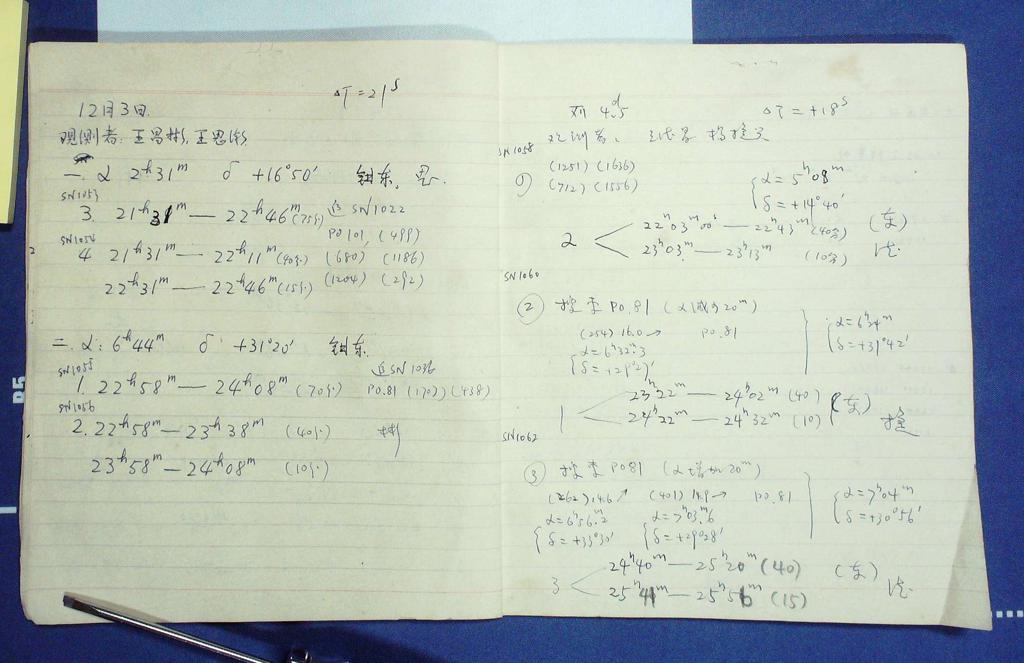 ΔT=21ˢ
12月3日
观测者:王思彬,王思潮
一. α 2ʰ31ᵐ δ +16°50′ 钼东. 思.
SN1053
3. 21ʰ31ᵐ — 22ʰ46ᵐ(75分) 近 SN1022
PO101 (499)
SN1054
4 21ʰ31ᵐ — 22ʰ11ᵐ(40分) (680) (1186)
22ʰ31ᵐ — 22ʰ46ᵐ(15分) (1204) (292)
二. α: 6ʰ44ᵐ δ +31°20′ 钼东.
SN1055
1. 22ʰ58ᵐ — 24ʰ08ᵐ (70分) 近SN1036
PO.81 (1702) (438)
SN1056
2. 22ʰ58ᵐ — 23ʰ38ᵐ (40分) 彬
23ʰ58ᵐ — 24ʰ08ᵐ (10分)
4ᵈ.5 ΔT = +18ˢ
观测者、
SN1058
(1251) (1636)
① (712) (1556)
{ α = 5ʰ08ᵐ
δ = +14°40′
2 < 22ʰ03ᵐ00ˢ — 22ʰ43ᵐ (40分) (东)
23ʰ03ᵐ — 23ʰ13ᵐ (10分)
SN1060
② 搜索 PO.81 (α减少20ᵐ)
(254) 16.0 → PO.81
{ α = 6ʰ32ᵐ.3
δ = +29°21′
{ α = 6ʰ24ᵐ
δ = +31°42′
1 < 23ʰ22ᵐ — 24ʰ02ᵐ (40) (东)
24ʰ22ᵐ — 24ʰ32ᵐ (10)
SN1062
③ 搜索 PO81 (α增加20ᵐ)
(262) 14.6 ↗ (401) 14.9 → PO.81
{ α = 6ʰ56ᵐ.2
δ = +33°30′
{ α = 7ʰ03ᵐ.6
δ = +29°28′
{ α = 7ʰ04ᵐ
δ = +30°56′
3 < 24ʰ40ᵐ — 25ʰ20ᵐ (40) (东)
25ʰ41ᵐ — 25ʰ56ᵐ (15)